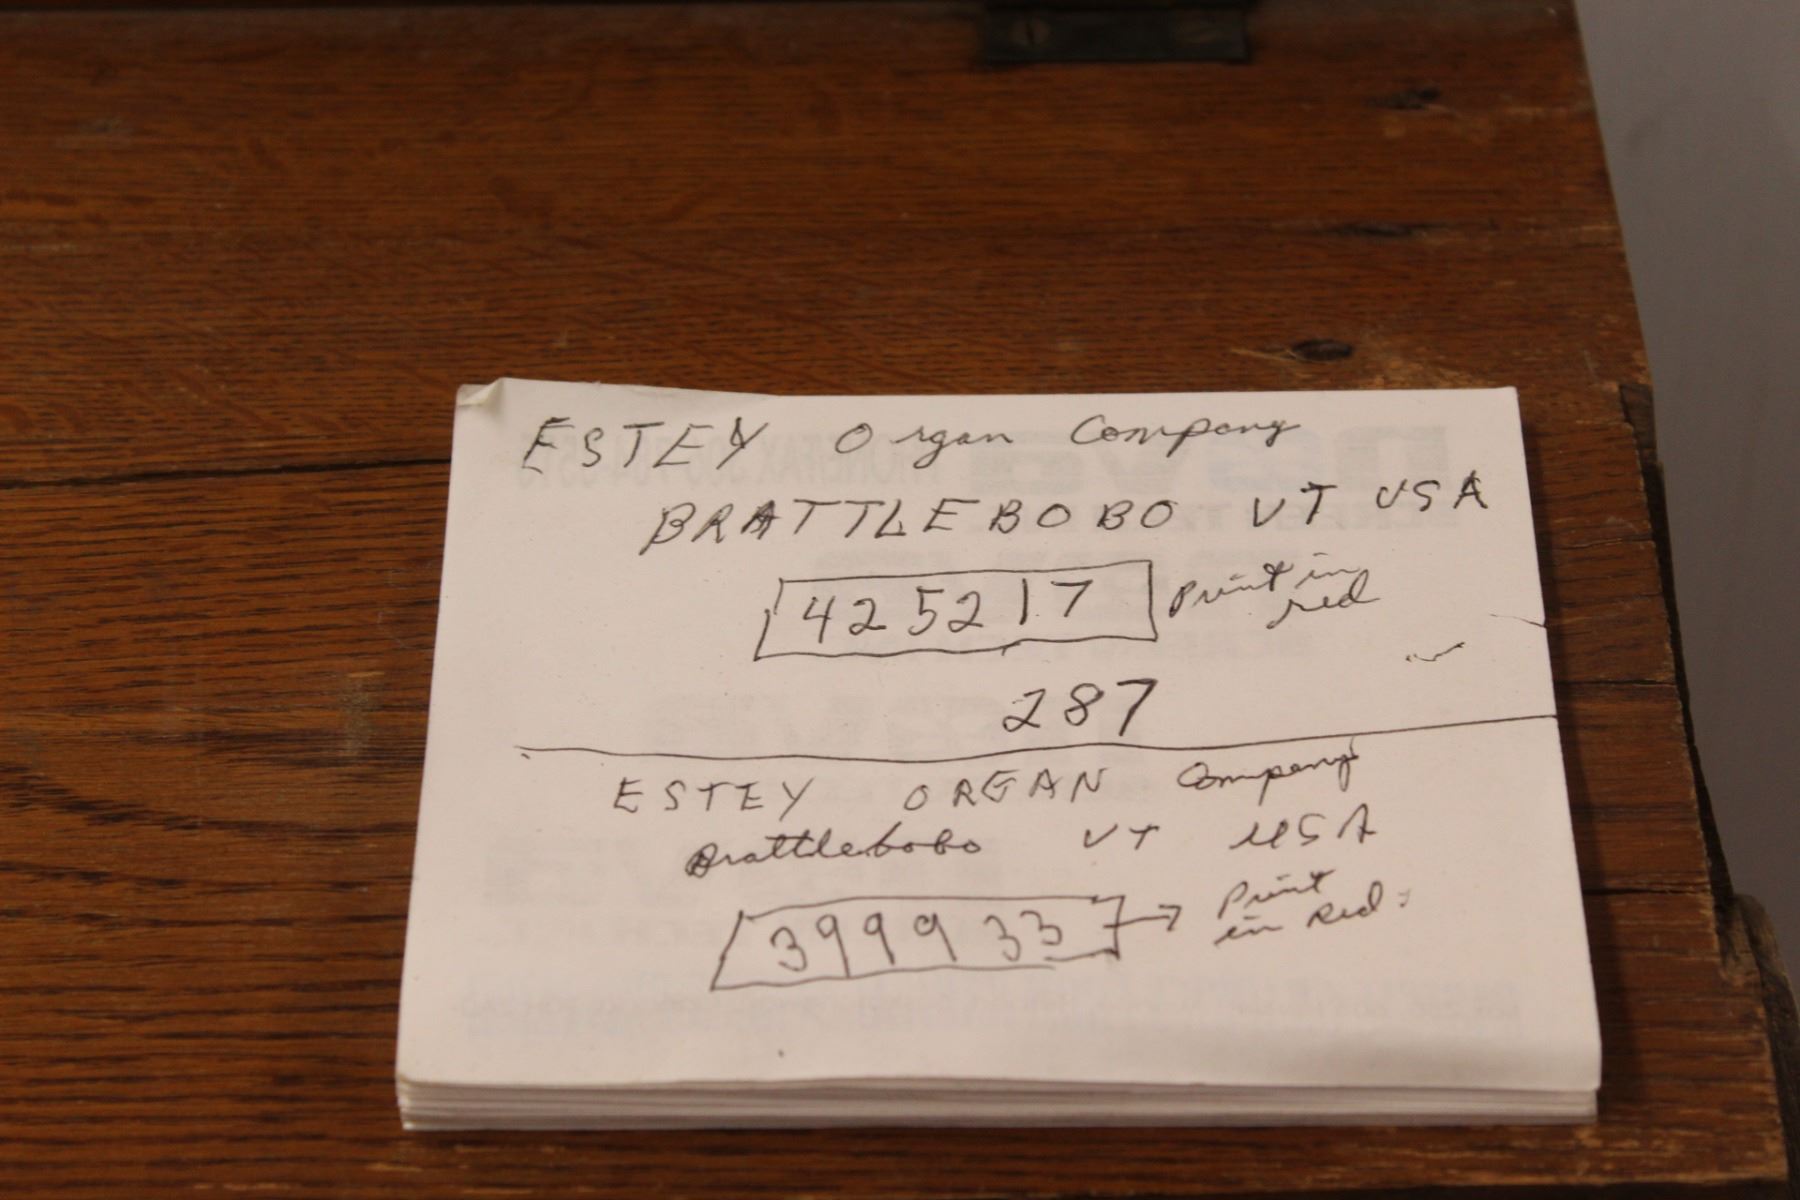 ESTEY Organ Company
BRATTLEBOBO VT USA
425217 Print in
red
287
ESTEY ORGAN Company
Brattlebobo VT USA
399933 → Print
in Red